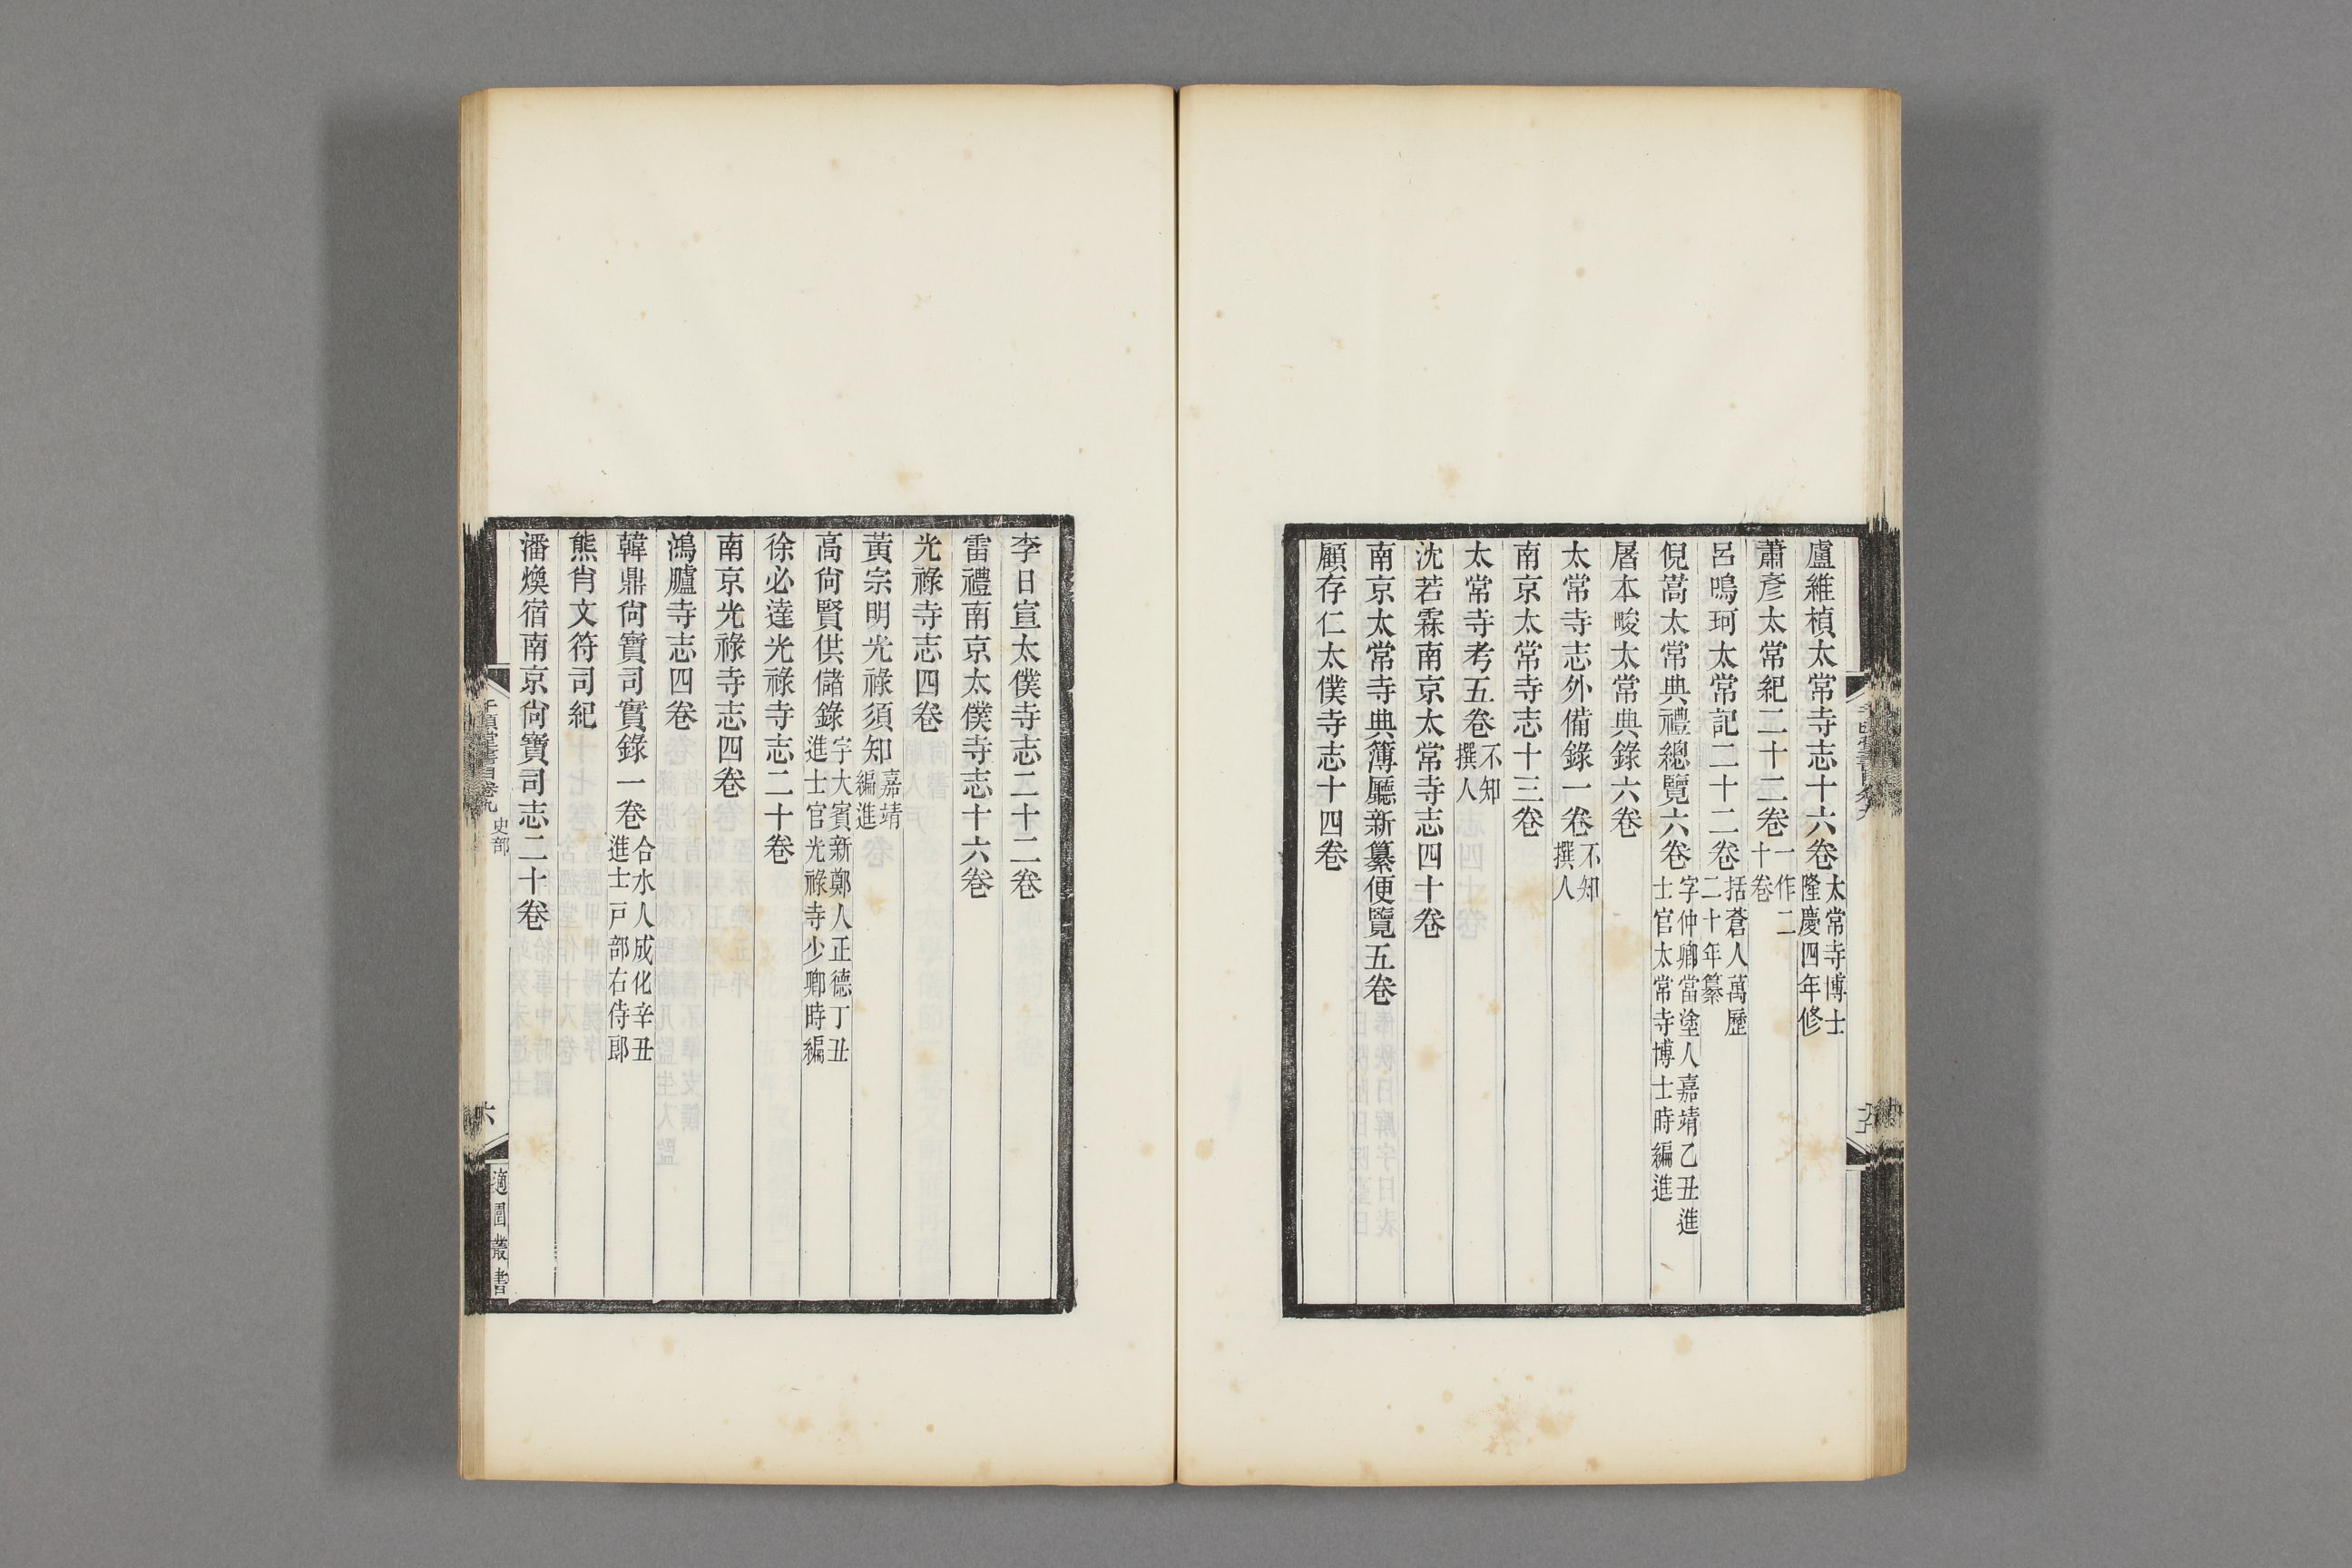 盧維楨太常寺志十六卷太常寺博士隆慶四年修
蕭彥太常紀二十二卷一作二十卷
呂鳴珂太常記二十二卷括蒼人萬歷二十年纂
倪嵩太常典禮總覽六卷字仲卿當塗人嘉靖乙丑進士官太常寺博士時編進
屠本畯太常典錄六卷
太常寺志外備錄一卷不知撰人
南京太常寺志十三卷
太常寺考五卷不知撰人
沈若霖南京太常寺志四十卷
南京太常寺典簿廳新纂便覽五卷
顧存仁太僕寺志十四卷
李日宣太僕寺志二十二卷
雷禮南京太僕寺志十六卷
光祿寺志四卷
黃宗明光祿須知嘉靖編進
高尙賢供儲錄字大賓新鄭人正德丁丑進士官光祿寺少卿時編
徐必達光祿寺志二十卷
南京光祿寺志四卷
鴻臚寺志四卷
韓鼎尙寶司實錄一卷合水人成化辛丑進士戸部右侍郎
熊尙文符司紀
潘煥宿南京尙寶司志二十卷
千頃堂書目卷九 史部
六
適園叢書